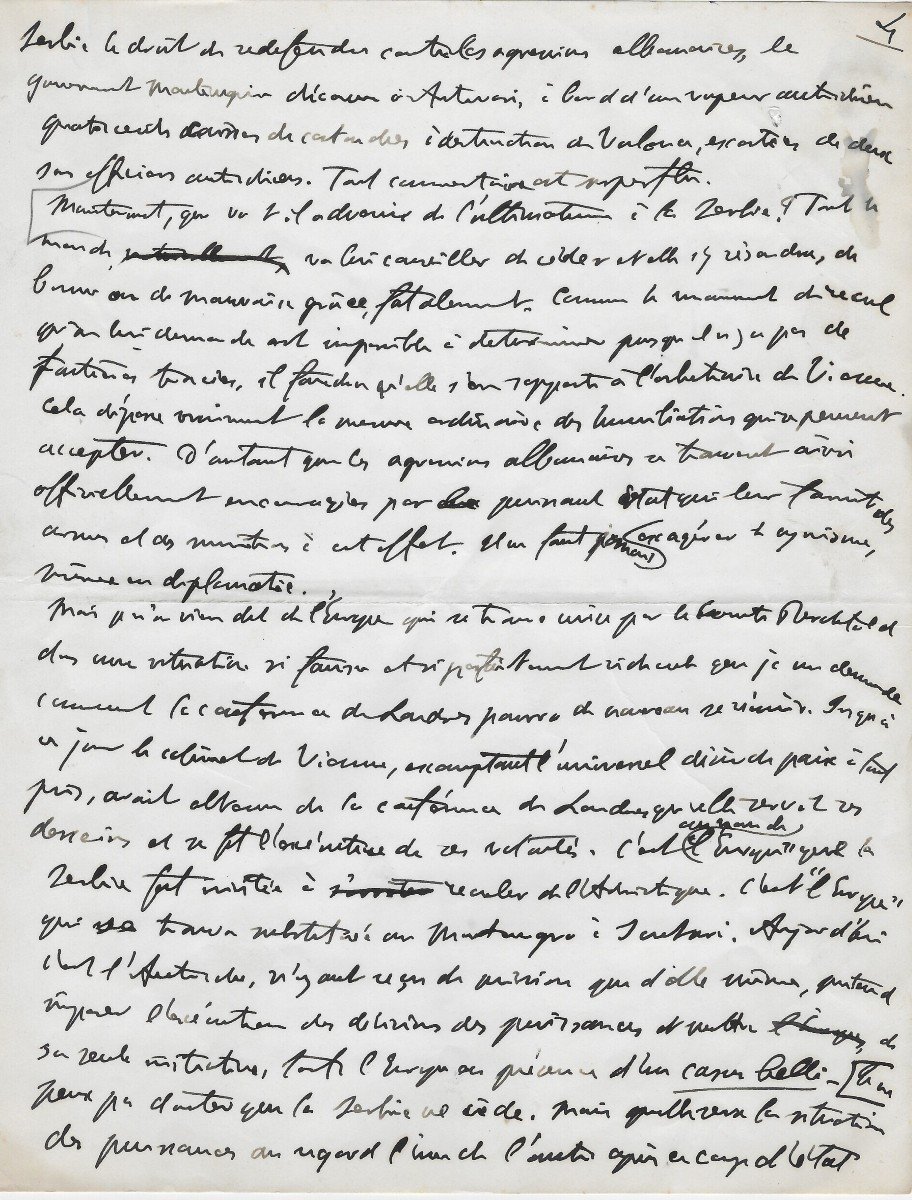 4
Serbie le droit de se défendre contre les agressions albanaises, le
gouvernement monténégrin découvre à Antivari, à bord d'un vapeur autrichien
quatre cents caisses de cartouches à destination de Valona, escortées de deux
sous officiers autrichiens. Tout commentaire est superflu.
Maintenant, que va-t-il advenir de l'ultimatum à la Serbie? Tout le
monde va lui conseiller de céder et elle s'y résoudra, de
bonne ou de mauvaise grâce, fatalement. Comme le mouvement de recul
qu'on lui demande est impossible à déterminer puisqu'il n'y a pas de
frontières tracées, il faudra qu'elle s'en rapporte à l'arbitraire de Vienne.
Cela dépasse vraiment la mesure ordinaire des humiliations qui se peuvent
accepter. D'autant que les agressions albanaises se trouvent ainsi
officiellement encouragées par puissant État qui leur fournit des
armes et des munitions à cet effet. Il ne faut pas exagérer le cynisme,
même en diplomatie.
Mais qu'advient-il de l'Europe qui se trouve mise par le comte Berchtold
dans une situation si fausse et si parfaitement ridicule que je me demande
comment la conférence de Londres pourra de nouveau se réunir. Jusqu'à
ce jour le cabinet de Vienne, escomptant l'universel désir de paix à tout
prix, avait obtenu de la conférence de Londres qu'elle servit ses
desseins et se fît l'exécutrice de ses volontés. C'est au nom de
"l'Europe" que la
Serbie fut invitée à reculer de l'Adriatique. C'est "l'Europe"
qui se trouva substituée au Monténégro à Scutari. Aujourd'hui
c'est l'Autriche, n'ayant reçu de mission que d'elle même, prétend
imposer l'exécution des décisions des puissances et mettre de
sa seule initiative, toute l'Europe en présence d'un casus belli. Je ne
peux pas douter que la Serbie ne cède. Mais quelle sera la situation
des puissances au regard l'une de l'autre après ce coup d'état